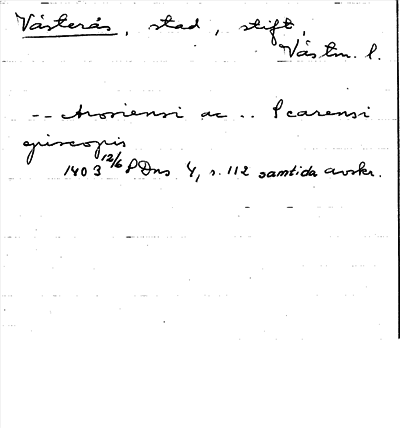 Västerås, stad, stift,
Västm. l.
-- Arosiensi ac .. Scarensi
episcopis
1403 12/6 SDns 1, s. 112 samtida avskr.